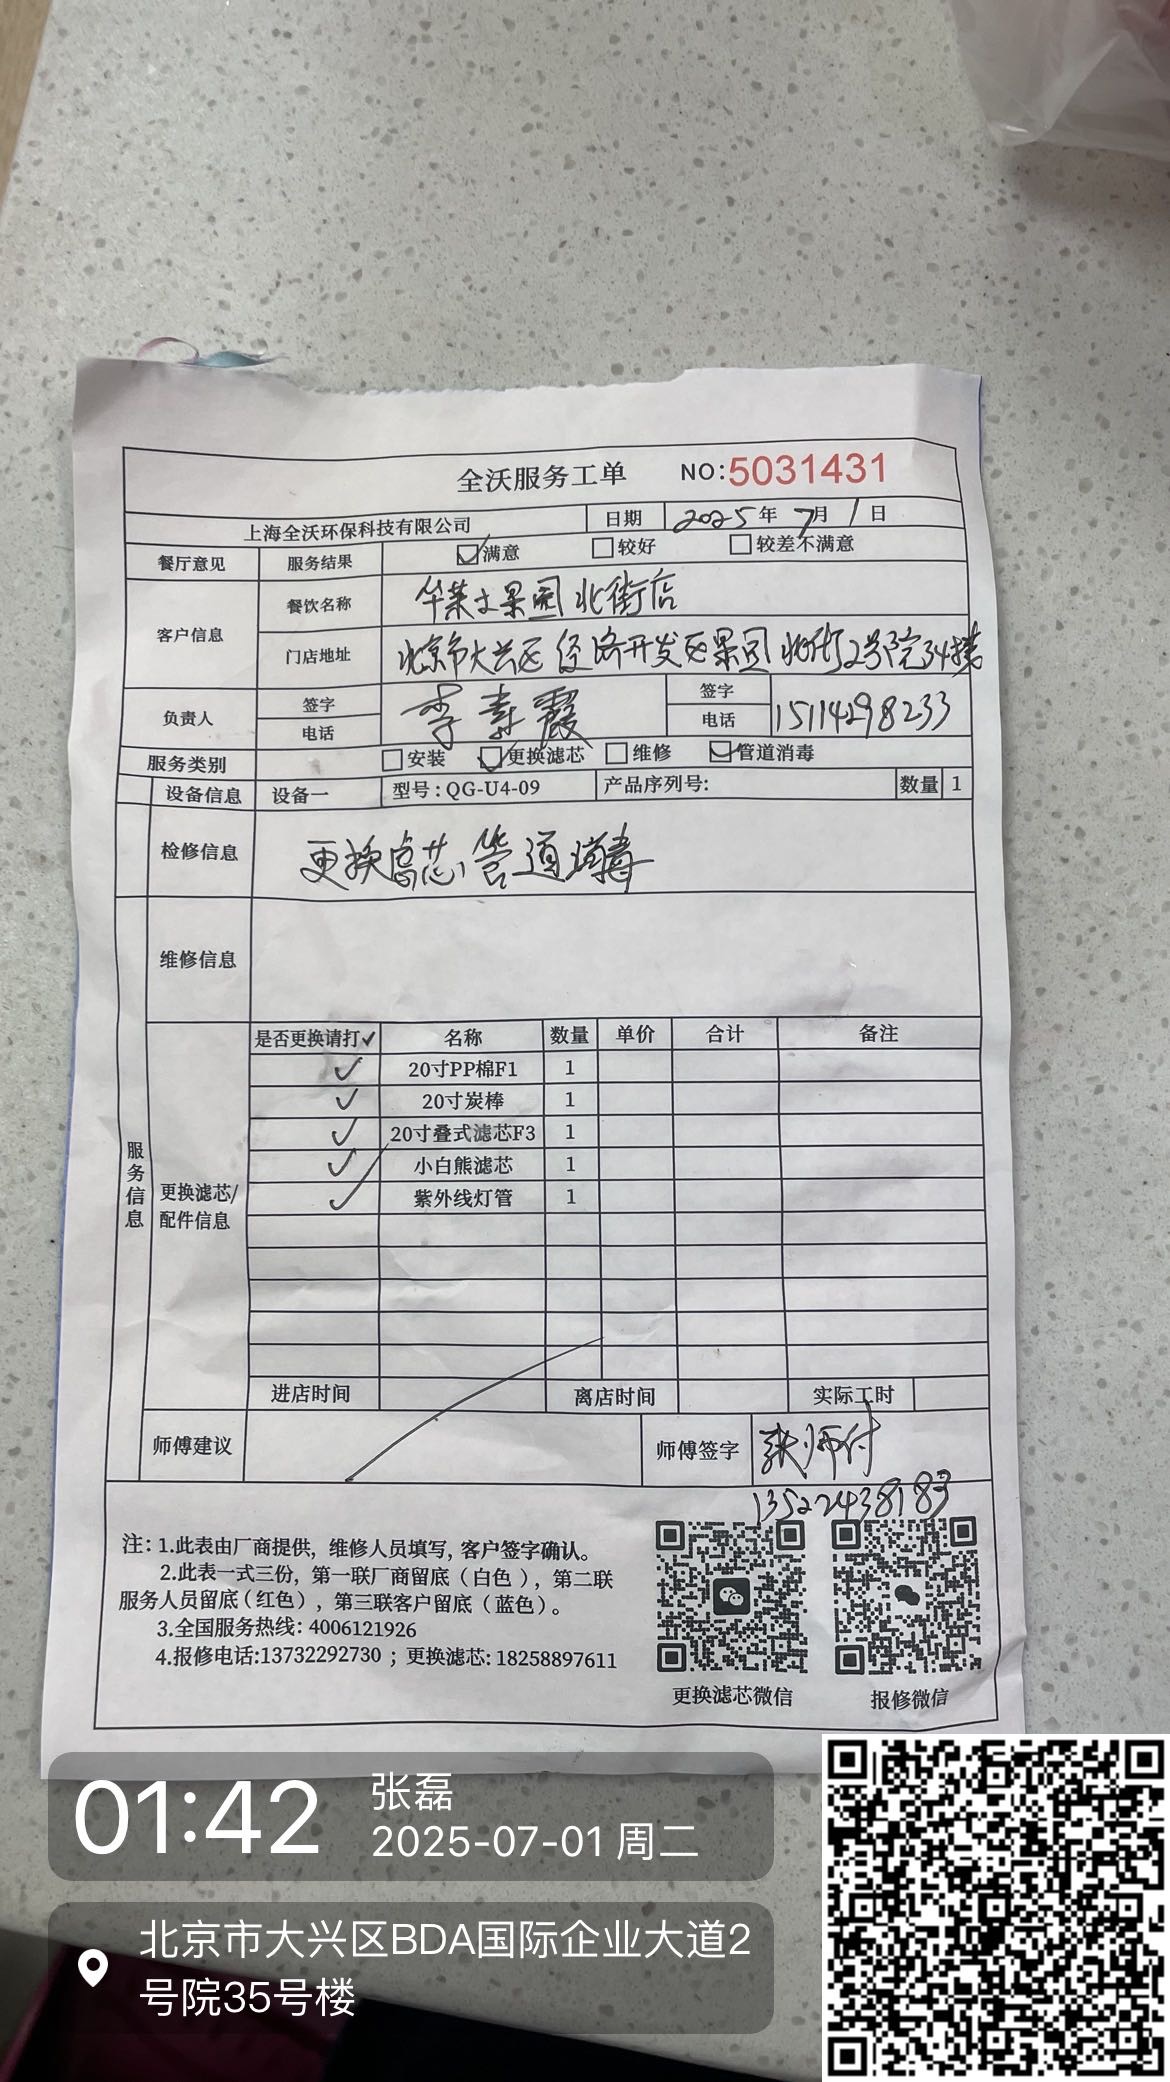 全沃服务工单 NO:5031431
上海全沃环保科技有限公司 日期 2025年 7月 1日
餐厅意见 服务结果 满意 较好 较差不满意
客户信息 餐饮名称 华莱士果园北街店
门店地址 北京市大兴区经济开发区果园北街2号院34楼
负责人 签字 李素霞 签字
电话 电话 15114298233
服务类别 安装 更换滤芯 维修 管道消毒
设备信息 设备一 型号:QG-U4-09 产品序列号: 数量 1
检修信息 更换滤芯 管道消毒
维修信息
服务信息
更换滤芯/
配件信息
是否更换请打✓ 名称 数量 单价 合计 备注
✓ 20寸PP棉F1 1
✓ 20寸炭棒 1
✓ 20寸叠式滤芯F3 1
✓ 小白熊滤芯 1
✓ 紫外线灯管 1
进店时间 离店时间 实际工时
师傅建议 师傅签字 张师付
13522438183
注: 1.此表由厂商提供, 维修人员填写, 客户签字确认。
2.此表一式三份, 第一联厂商留底（白色）, 第二联
服务人员留底（红色）, 第三联客户留底（蓝色）。
3.全国服务热线: 4006121926
4.报修电话:13732292730 ; 更换滤芯: 18258897611
更换滤芯微信 报修微信
01:42
张磊
2025-07-01 周二
北京市大兴区BDA国际企业大道2
号院35号楼